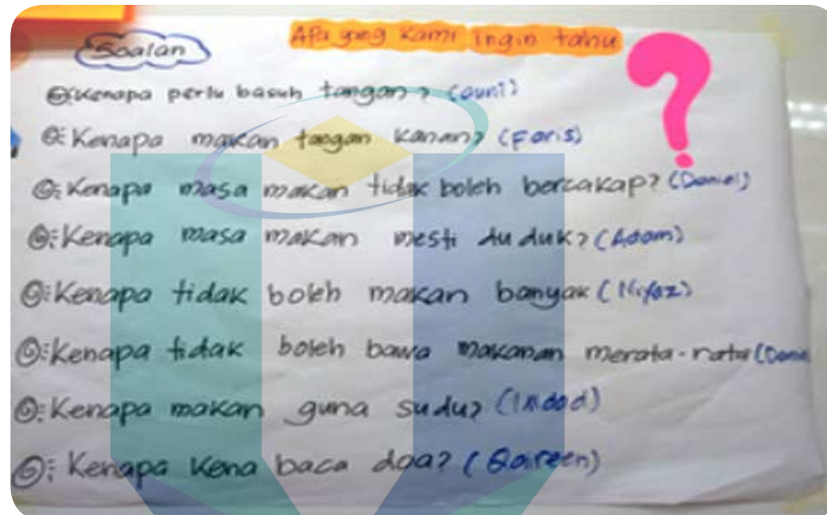 Soalan
Apa yang kami ingin tahu
?
S: Kenapa perlu basuh tangan? (Auni)
S: Kenapa makan tangan kanan? (Faris)
S: Kenapa masa makan tidak boleh bercakap? (Daniel)
S: Kenapa masa makan mesti duduk? (Adam)
S: Kenapa tidak boleh makan banyak (Niyaz)
S: Kenapa tidak boleh bawa makanan merata-rata (
S: Kenapa makan guna sudu? (Imdad)
S: Kenapa kena baca doa? (Qaireen)